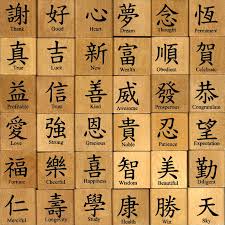 謝 好 心 夢 念 恆
Thank Good Heart Dream Permanent
真 吉 新 富 順 賀
True Luck New Wealth Obedient Celebrate
益 信 善 威 發 恭
Profitable Trust Kind Awesome Prosperous Congratulate
愛 強 恩 貴 忍 望
Love Strong Gracious Noble Expectation
福 樂 喜 智 美 勤
Fortune Cheerful Happiness Wisdom Beautiful Diligent
仁 壽 學 康 勝 天
Merciful Longevity Study Health Win Sky